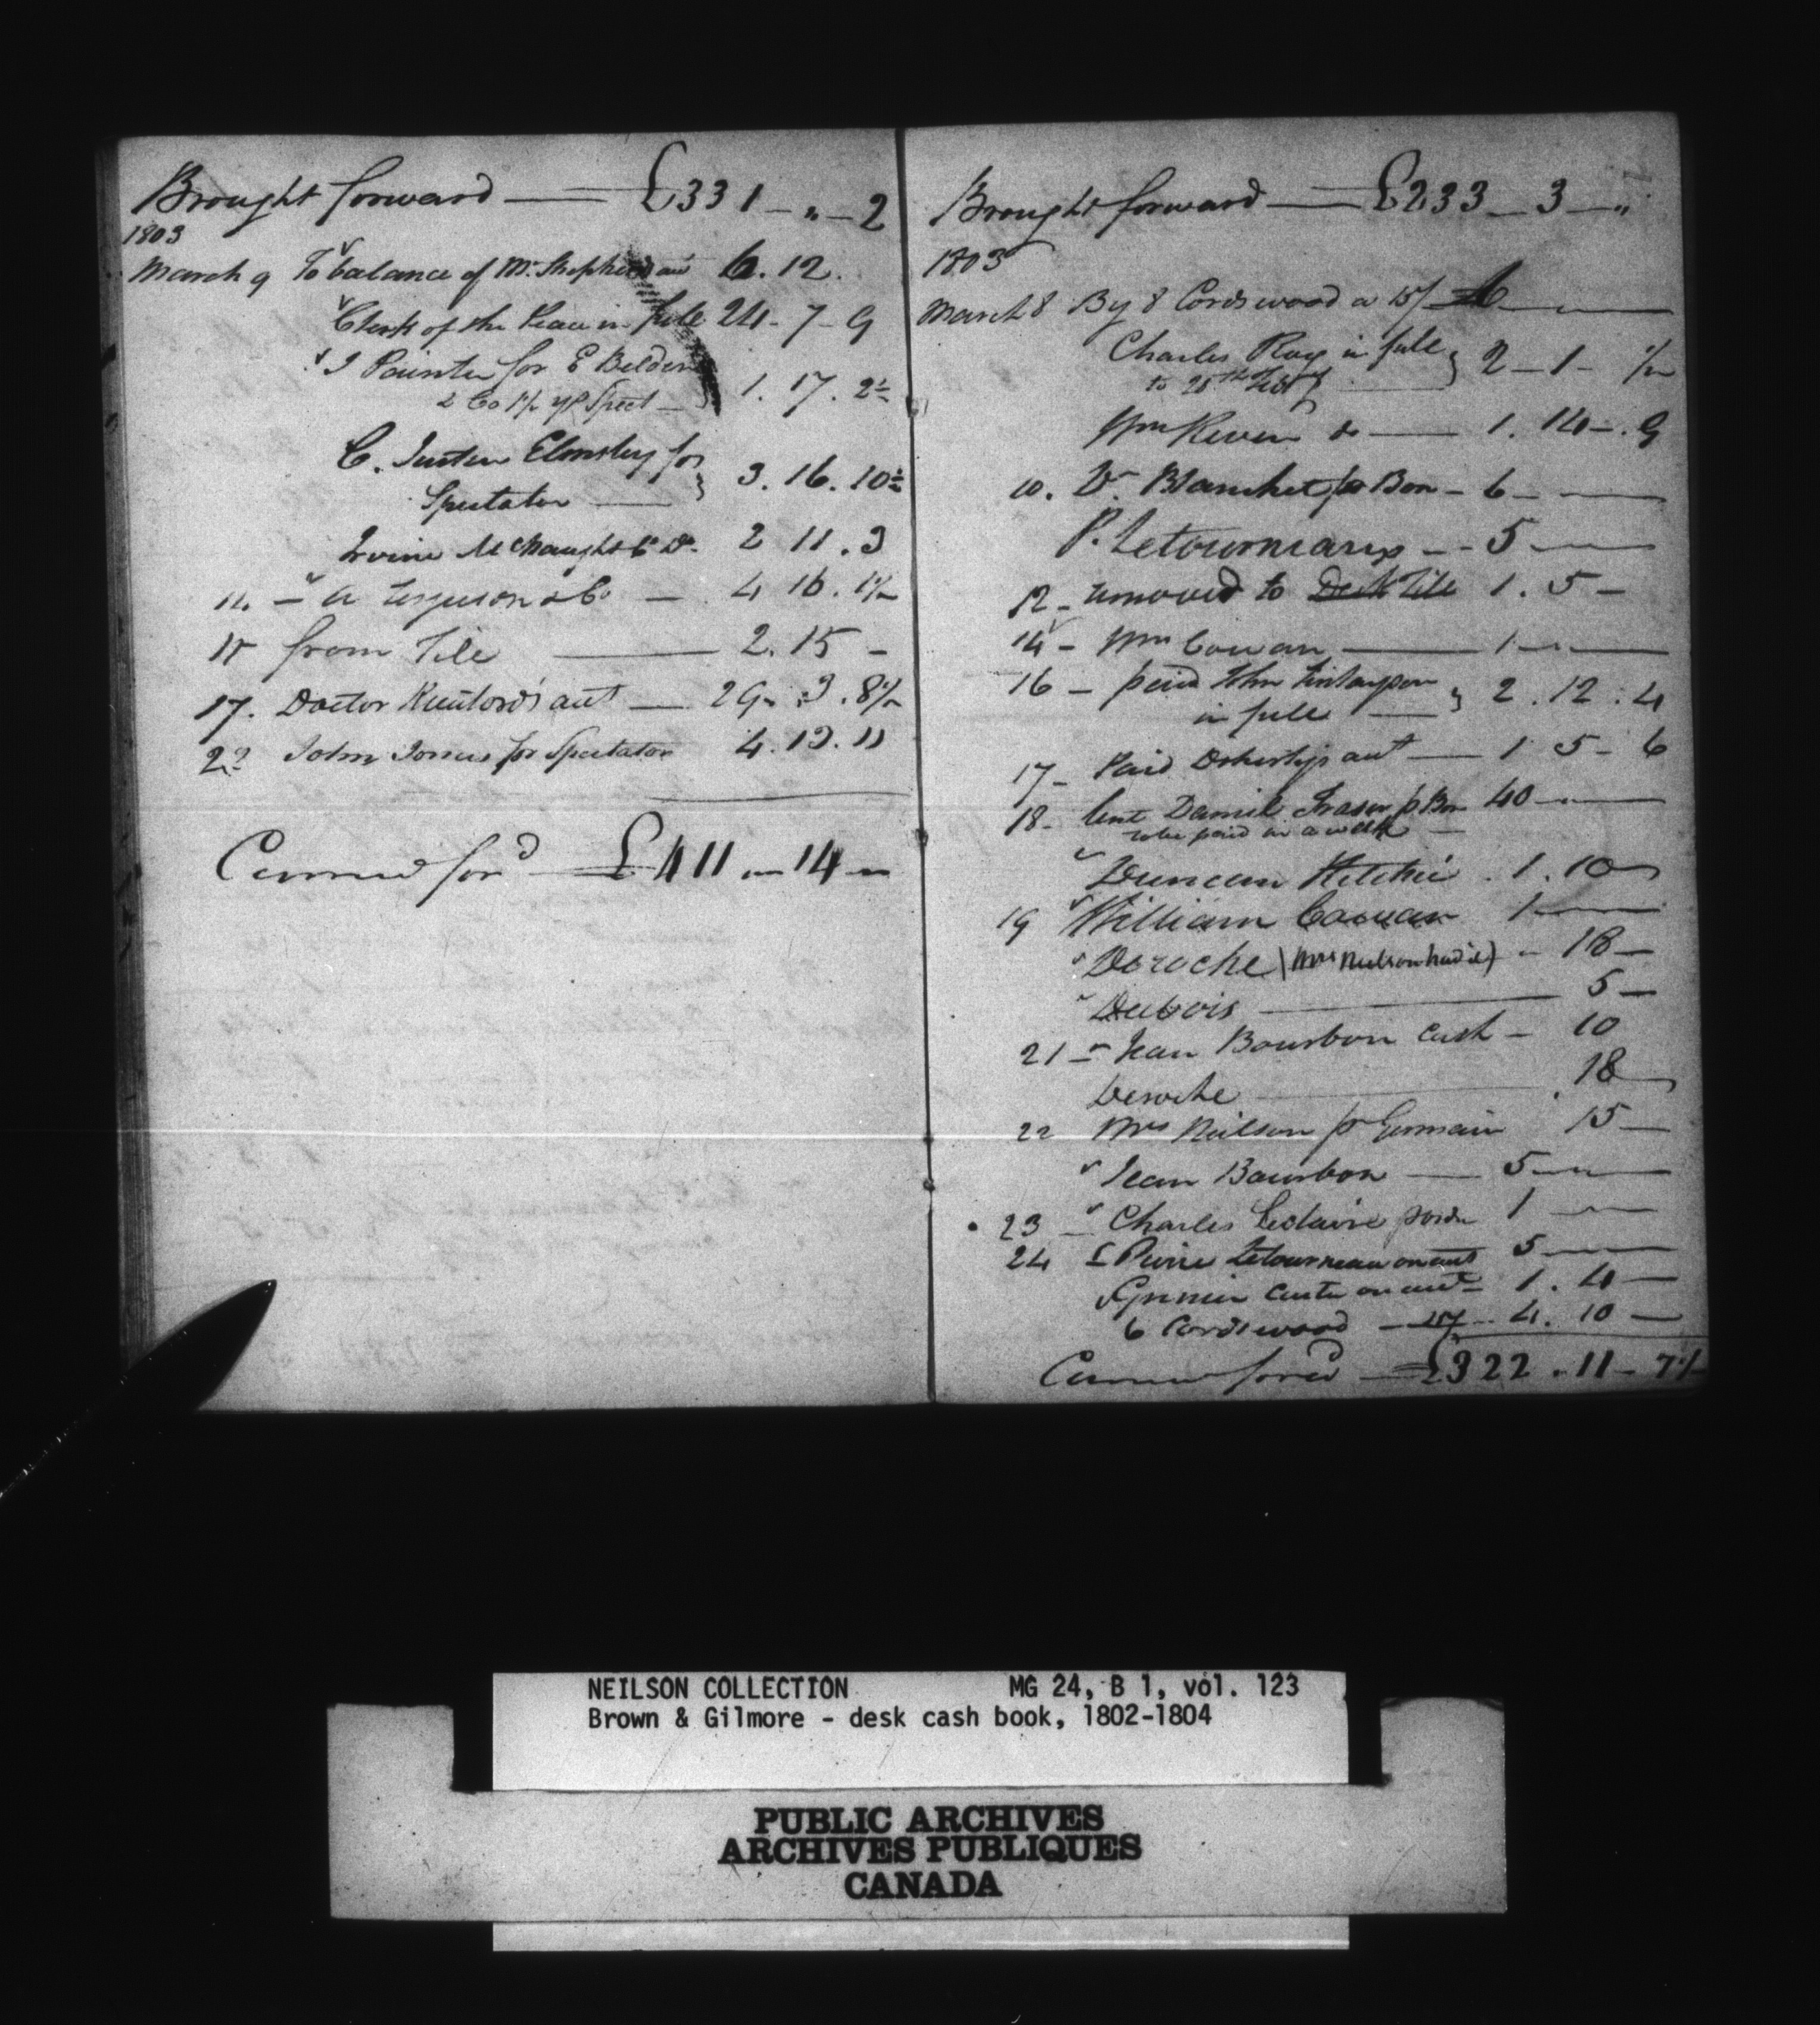 Brought forward — £331 - „ - 2
1803
March 9 To balance of Mr. Shepherds act 6. 12.
Clerk of the Peace in full 24 - 7 - 9
J Painter for E Belden
& Co pr Spect — 1. 17. 2½
C. Justice Elmsley for
Spectator — 3. 16. 10½
Irvine McNaught & Co Do. 2 11. 3
14. — A Ferguson & Co — 4 16. 1½
15 from Tile — 2. 15 -
17. Doctor act — 29 - 3. 8½
23 John Jones for Spectator 4. 13. 11
Carried for'd £411 „ 14 „
Brought forward — £233 - 3 - „
1803
March 8 By 8 Cords wood a 15/ 6 —
Charles Roy in full
to 28th Feby — 2 - 1 - ½
Wm Keven do — 1. 14 - . 9
10. Dr. Blanchet pr Bon - 6 - —
P. Letourneaux -- 5 —
12 - removed to Desk Tile 1. 5 -
14 - Wm Cowan — 1 —
16 - paid John Finlayson
in full — 2. 12. 4
17 - Paid Dohertys act — 1 5 - 6
18 - lent Daniel Fraser pr Bon 40 —
to be paid in a week —
Duncan Ritchie . 1. 10
19 William Cowan 1 —
Deroche (Mrs Neilson had it) - 18 -
Dubois — 5 -
21 - Jean Bourbon cash - 10
Deroche — 18
22 Mrs Neilson pr Germain 15 -
Jean Bourbon — 5 —
23 - Charles Leclaire 1 —
24 Pierre Letourneau on act 5 —
Grenier Carter on act 1. 4 -
6 Cords wood — 15/ - 4. 10 -
Carried for'd — £322. 11 - 7½
NEILSON COLLECTION MG 24, B 1, vol. 123
Brown & Gilmore - desk cash book, 1802-1804
PUBLIC ARCHIVES
ARCHIVES PUBLIQUES
CANADA